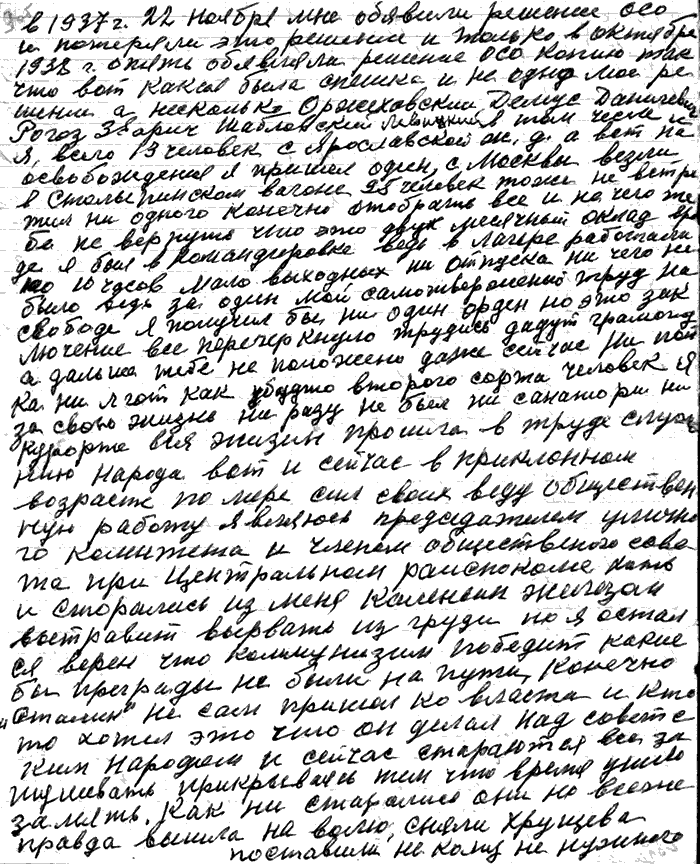 в 1937 г. 22 ноября мне обявили решение ОСО
и потеряли это решение и только в октябре
1938 г. опять обявляли решение ОСО копию так
что вот какая была спешка и не одно мое ре-
шение а несколько Оржеховский Демус Данилевич
Рогоз Зварич Шабловский Левицкий в том числе и
я, всего 13 человек с Ярославской ж. д. а вот на
освобождения я пришел один, с Москвы везли
в столыпинском вагоне 25 человек тоже не встре
тил ни одного конечно отобрать все и на чего же
бы не вернуть что это двух месячный оклад
где я был в командировке ведь в лагере работали
по 10 часов мало выходных ни отпуска ни чего не
было ведь за один мой самоотверженый труд на
свободе я получил бы не один орден но это зак
лючение все перечеркнуло трудись дадут грамоту
а дальше тебе не положено даже сейчас ни пай
ка ни льгот как будто второго сорта человек я
за свою жизнь ни разу не был ни санатории ни
курорте вся жизнь прошла в труде служе
нию народа вот и сейчас в приклонном
возрасте по мере сил своих веду обществен
ную работу являюсь председателем улично
го комитета и членом общественного сове
та при Центральном райсполкоме хоть
и старались из меня каленым железом
вытравит вырвать из груди но я остал
ся верен что коммунизим победит какие
бы преграды не были на пути, конечно
"Сталин" не сам пришол ко власти и кто
то хотел это что он делал над советс
ким народом и сейчас стараются все за
мушевать прикрываясь тем что время ушло
замять. Как ни старались они но все же
правда вышла на волю, сняли Хрущева
поставили не кому не нужного